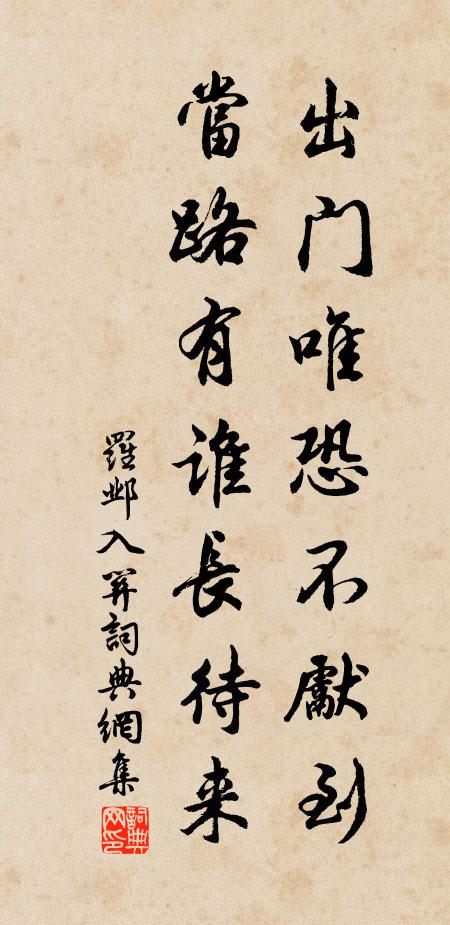 出门唯恐不獻到
當路有谁長待来
羅邺入關詞典網集
詞典网印